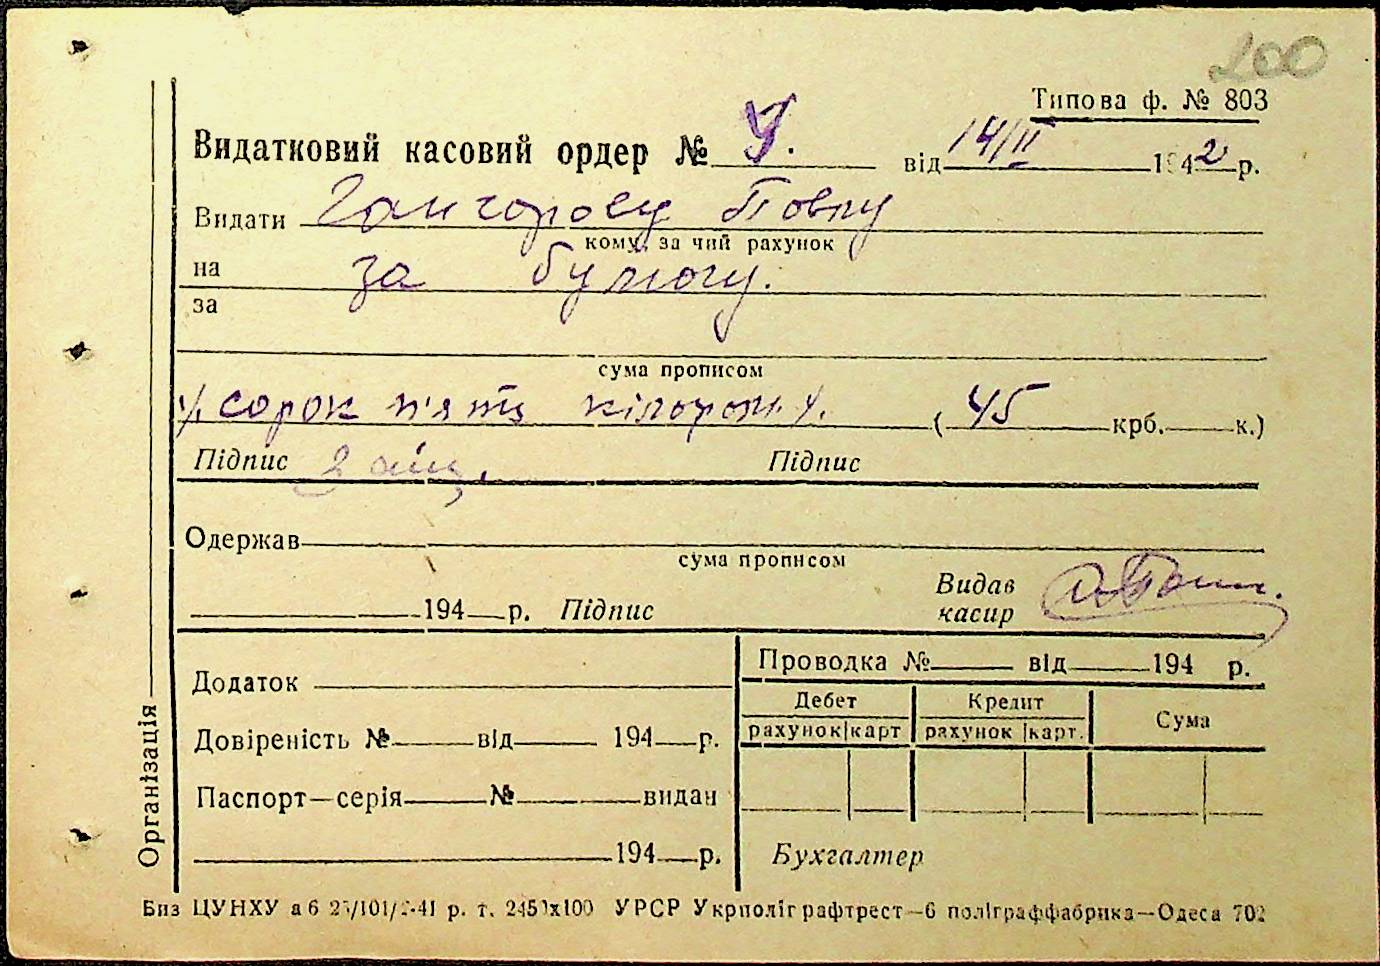 200
Типова ф. № 803
Видатковий касовий ордер № 4. від 14/II 1942 р.
Видати Гонгорову Повлу
кому, за чий рахунок
на за бумогу.
за
сума прописом
сорок п'ять (45 крб. к.)
Підпис Підпис
Одержав
сума прописом
Видав
194 р. Підпис касир
Додаток
Довіреність № від 194 р.
Паспорт—серія № видан
194 р.
Організація
Проводка № від 194 р.
Дебет Кредит Сума
рахунок карт рахунок карт.
Бухгалтер
Биз ЦУНХУ а б 41 р. т. х100 УРСР Укрполіграфтрест—6 поліграффабрика—Одеса 702